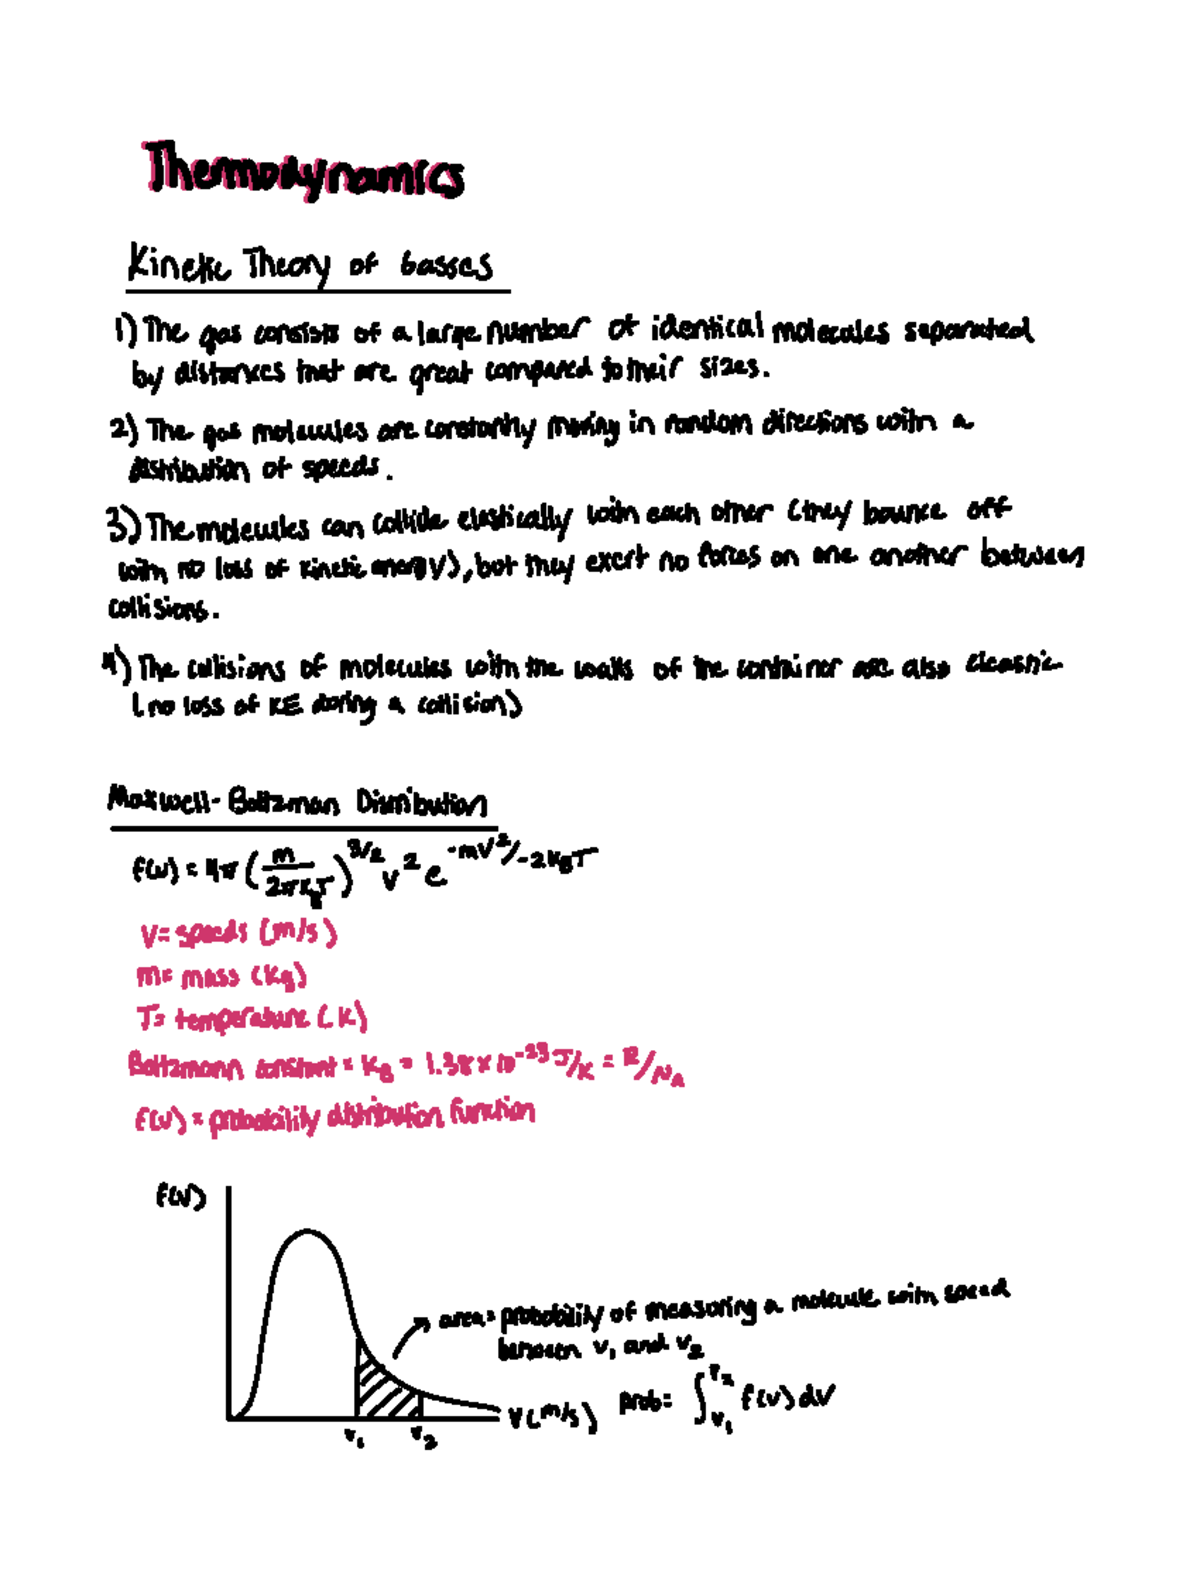 Thermodynamics
Kinetic Theory of Gasses
1) The gas consists of a large number of identical molecules separated
by distances that are great compared to their sizes.
2) The gas molecules are constantly moving in random directions with a
distribution of speeds.
3) The molecules can collide elastically with each other (they bounce off
with no loss of kinetic energy), but they exert no forces on one another between
collisions.
4) The collisions of molecules with the walls of the container are also elastic
(no loss of KE during a collision)
Maxwell-Boltzman Distribution
f(v) = 4π (m/2πK_BT)^3/2 v^2 e^-mv^2/-2K_BT
V= speeds (m/s)
m= mass (kg)
T= temperature (K)
Boltzmann constant = K_B = 1.38 x 10^-23 J/K = R/N_A
f(v) = probability distribution function
f(v)
→ area= probability of measuring a molecule with speed
between v₁ and v₂
prob= ∫_v₁^v₂ f(v) dv
V(m/s)
v₁ v₂